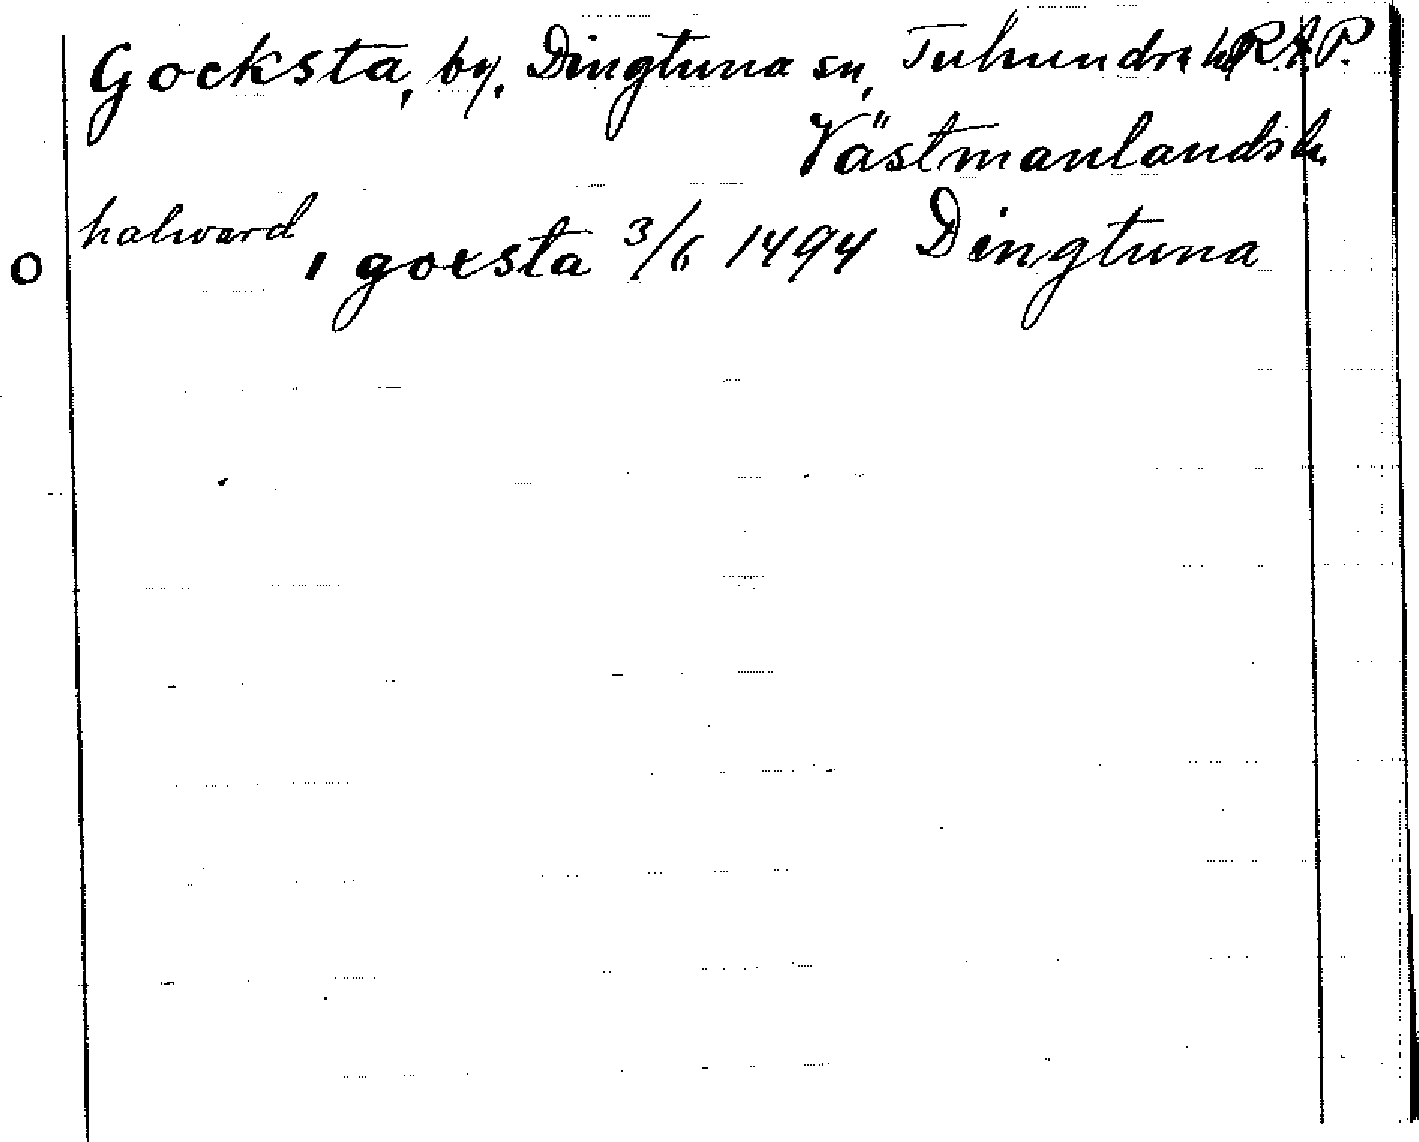 Gocksta, by, Dingtuna sn, Tuhundra hd R.A.P.
Västmanlands l.
halward
O i gocsta 3/6 1494 Dingtuna